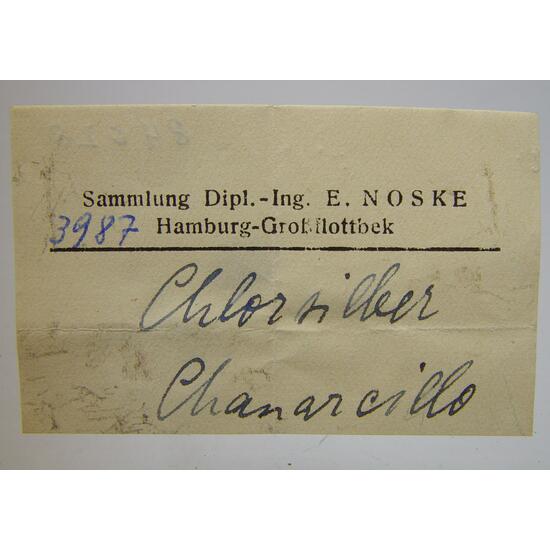 Sammlung Dipl.-Ing. E. NOSKE
3987 Hamburg-Großflottbek
Chlorsilber
Chanarcillo